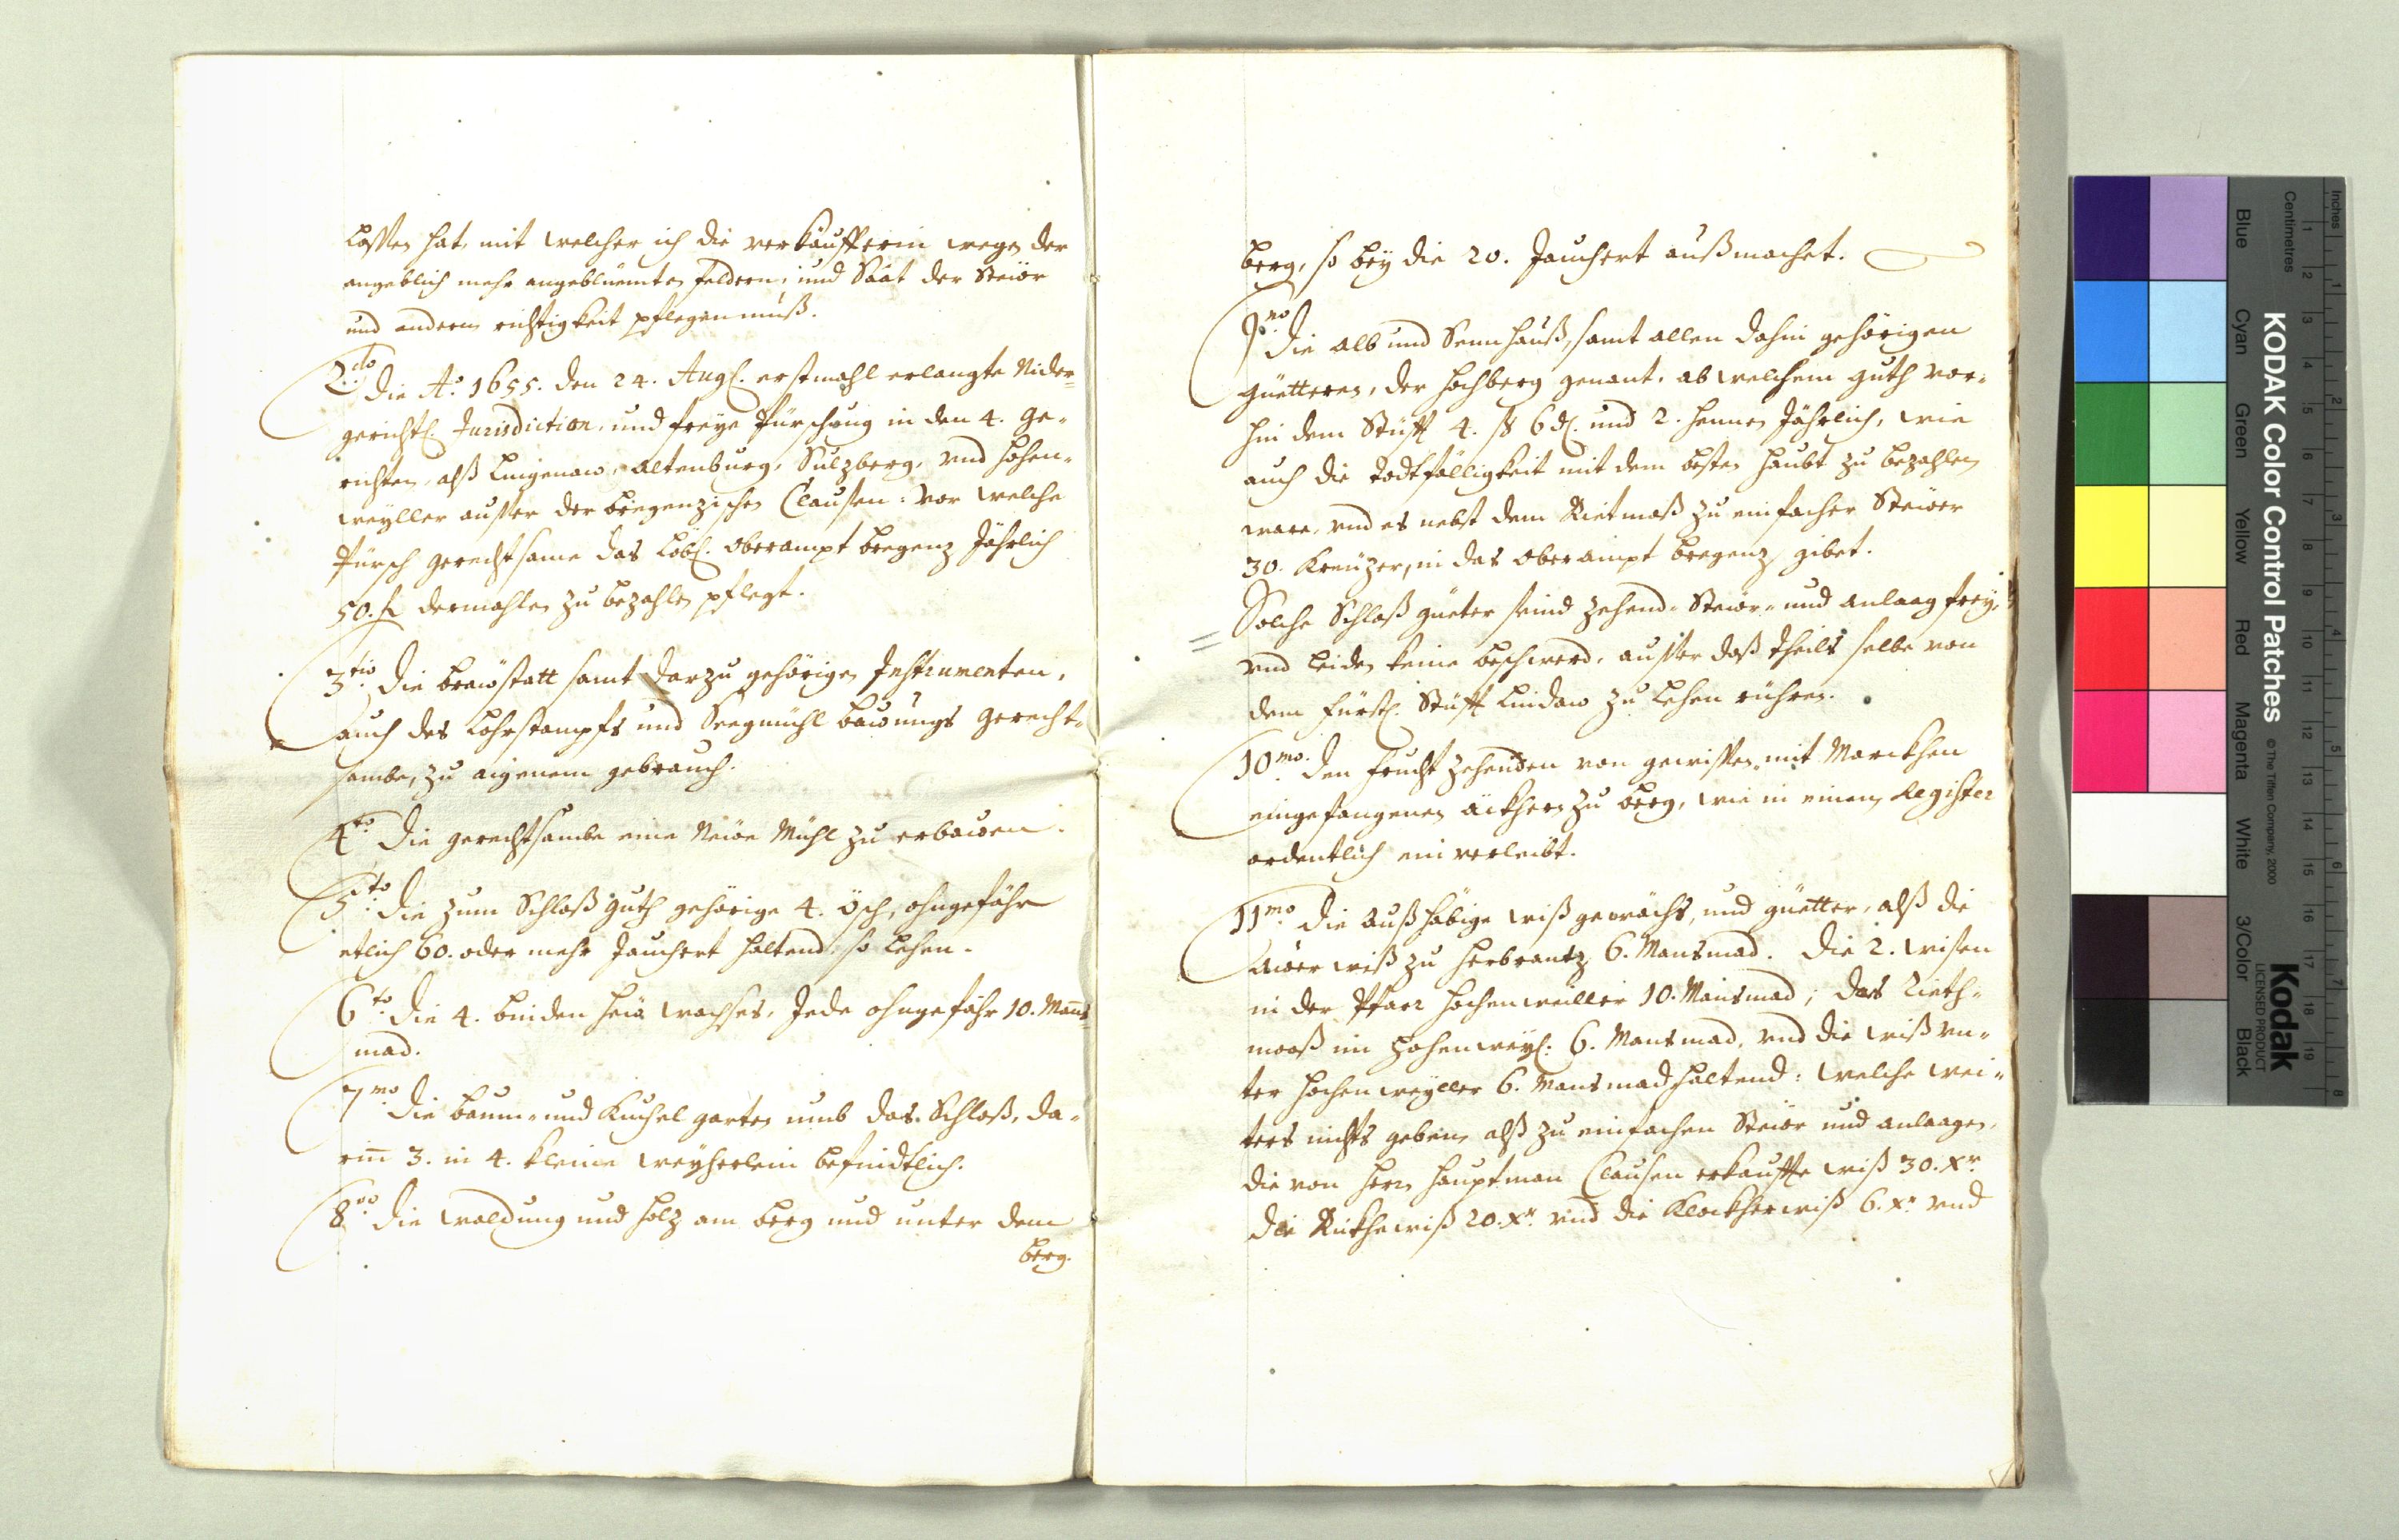 lassen hat, mit welcher ich die verkaufferin wegen der
angeblich mehr angeblüemten feldern, und Saat der Steür
und andern richtigkeit pflegen muß.
2.do Die Ao. 1655. den 24. Augl. erstmahl erlangte Nider=
gerichtl. Jurisdiction, und freye Pürschung in den 4. ge=
richten, alß Lingenaw, Altenburg, Sulzberg, und Hohen=
weyller ausser der bregenzischen Clausen: vor welche
Pürsch gerechtsame das Löbl. Oberampt bregenz Jährlich
50. fl dermahlen zu bezahlen pflegt.
3.tio Die brewstatt samt darzu gehörigen Instrumenten,
auch des Lohrstampfs und Seegmühl bawungs gerecht=
sambe, zu aigenem gebrauch.
4.to Die gerechtsambe eine Neüe Mühl zu erbawen.
5.to Die zum Schloß guth gehörige 4. Ösch, ohngefähr
etlich 60. oder mehr Jauchert haltend: so Lehen.
6.to Die 4. beinden heü wachses, Jede ohngefähr 10. Manns
mad.
7.mo Die baum= und Kuchel garten umb das Schloß, da=
rin 3. in 4. kleine weyherlein befindtlich.
8.vo Die waldung und holz am berg und unter dem
berg.
berg, so bey die 20. Jauchert außmachet.
9.no Die Alb und Sennhauß, samt allen dahin gehörigen
güetteren, der Hochberg genant, ab welchem guth vor=
hin dem Stüfft 4. ß 6 dl. und 2. hennen Jährlich, wie
auch die todtfälligkeit mit dem besten haubt zu bezahlen
ware, und es nebst dem Rietmaß zu einfacher Steüer
30. Kreüzer, in das Oberampt bregenz gibet.
Solche Schloß güeter seind zehend= Steür= und anlaag frey,
und leiden keine beschwerd, ausser daß theils selbe von
dem fürstl. Stüfft Lindaw zu Lehen rühren.
10.mo Den frucht zehenden von gewissen mit Marckhen
eingefangenen äckhern zu berg, wie in einem Register
ordentlich einverleibt.
11.mo Die außhäbige wißgewächs, und güetter, alß die
Awer wiß zu herbrantz 6. Mansmad. Die 2. wisen
in der Pfarr Hochenweiller 10. Mansmad; das Rieth=
mooß im Hohenweyl: 6. Mansmad, und die wiß un=
ter Hochenweyller 6. Mansmad haltend: welche wei=
ters nichts geben, alß zu einfachen Steür und anlaagen,
die von Hern Hauptman Clausen erkauffte wiß 30. xr.
die Rückhewiß 20. xr. und die Klockherwiß 6. xr. und
Inches
Centimetres
KODAK Color Control Patches
© The Tiffen Company, 2000
Kodak
LICENSED PRODUCT
Blue
Cyan
Green
Yellow
Red
Magenta
White
3/Color
Black